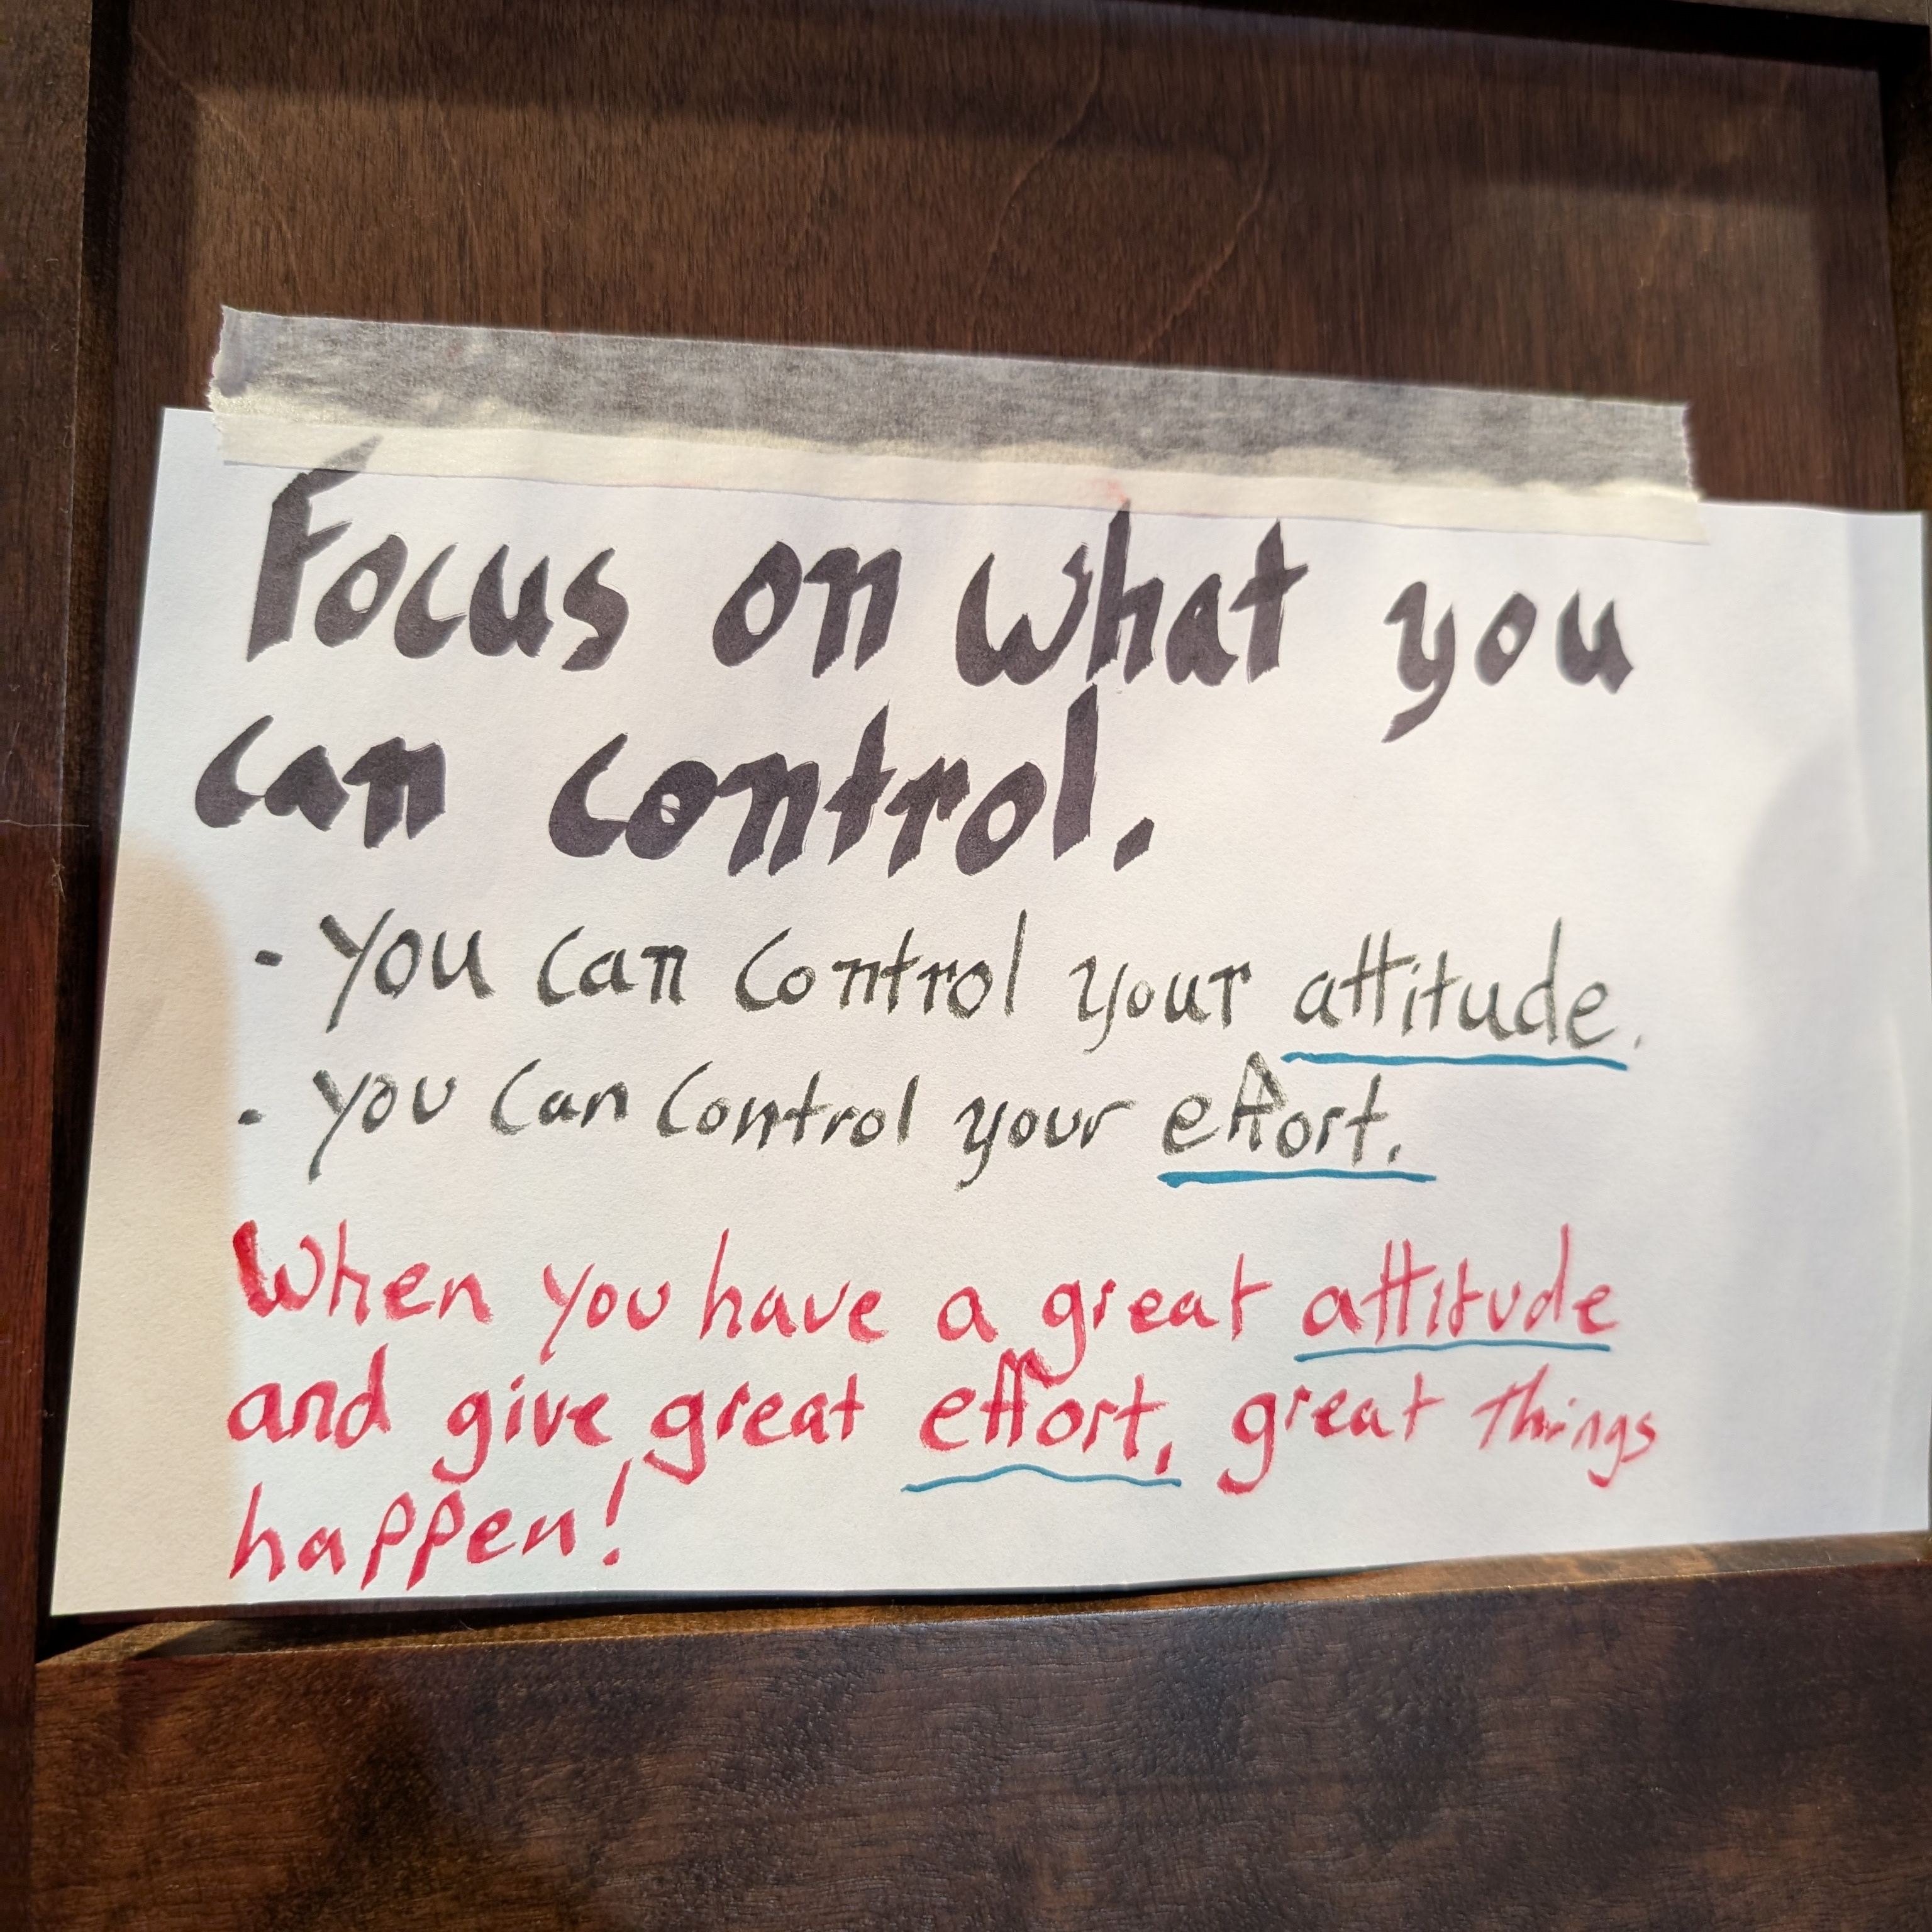 Focus on what you
can control.
- You can control your attitude.
- You can control your effort.
When you have a great attitude
and give great effort, great things
happen!